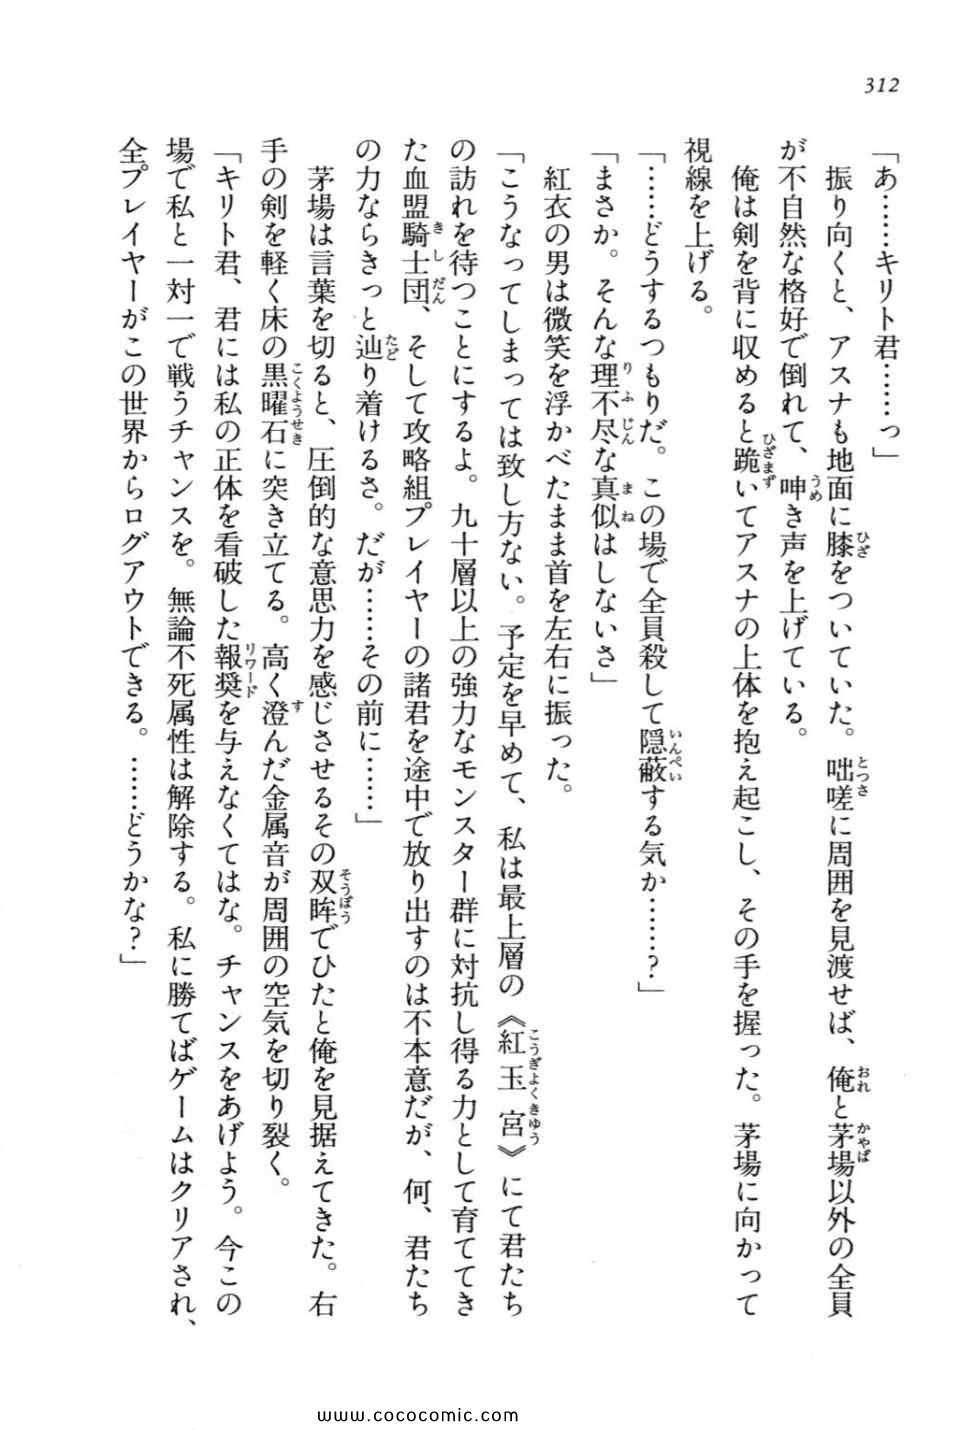 312
「あ……キリト君……っ」
振り向くと、アスナも地面に膝をついていた。咄嗟に周囲を見渡せば、俺と茅場以外の全員
が不自然な格好で倒れて、呻き声を上げている。
俺は剣を背に収めると跪いてアスナの上体を抱え起こし、その手を握った。茅場に向かって
視線を上げる。
「……どうするつもりだ。この場で全員殺して隠蔽する気か……？」
「まさか。そんな理不尽な真似はしないさ」
紅衣の男は微笑を浮かべたまま首を左右に振った。
「こうなってしまっては致し方ない。予定を早めて、私は最上層の《紅玉宮》にて君たち
の訪れを待つことにするよ。九十層以上の強力なモンスター群に対抗し得る力として育ててき
た血盟騎士団、そして攻略組プレイヤーの諸君を途中で放り出すのは不本意だが、何、君たち
の力ならきっと辿り着けるさ。だが……その前に……」
茅場は言葉を切ると、圧倒的な意思力を感じさせるその双眸でひたと俺を見据えてきた。右
手の剣を軽く床の黒曜石に突き立てる。高く澄んだ金属音が周囲の空気を切り裂く。
「キリト君、君には私の正体を看破した報奨を与えなくてはな。チャンスをあげよう。今この
場で私と一対一で戦うチャンスを。無論不死属性は解除する。私に勝てばゲームはクリアされ、
全プレイヤーがこの世界からログアウトできる。……どうかな？」
www.cococomic.com